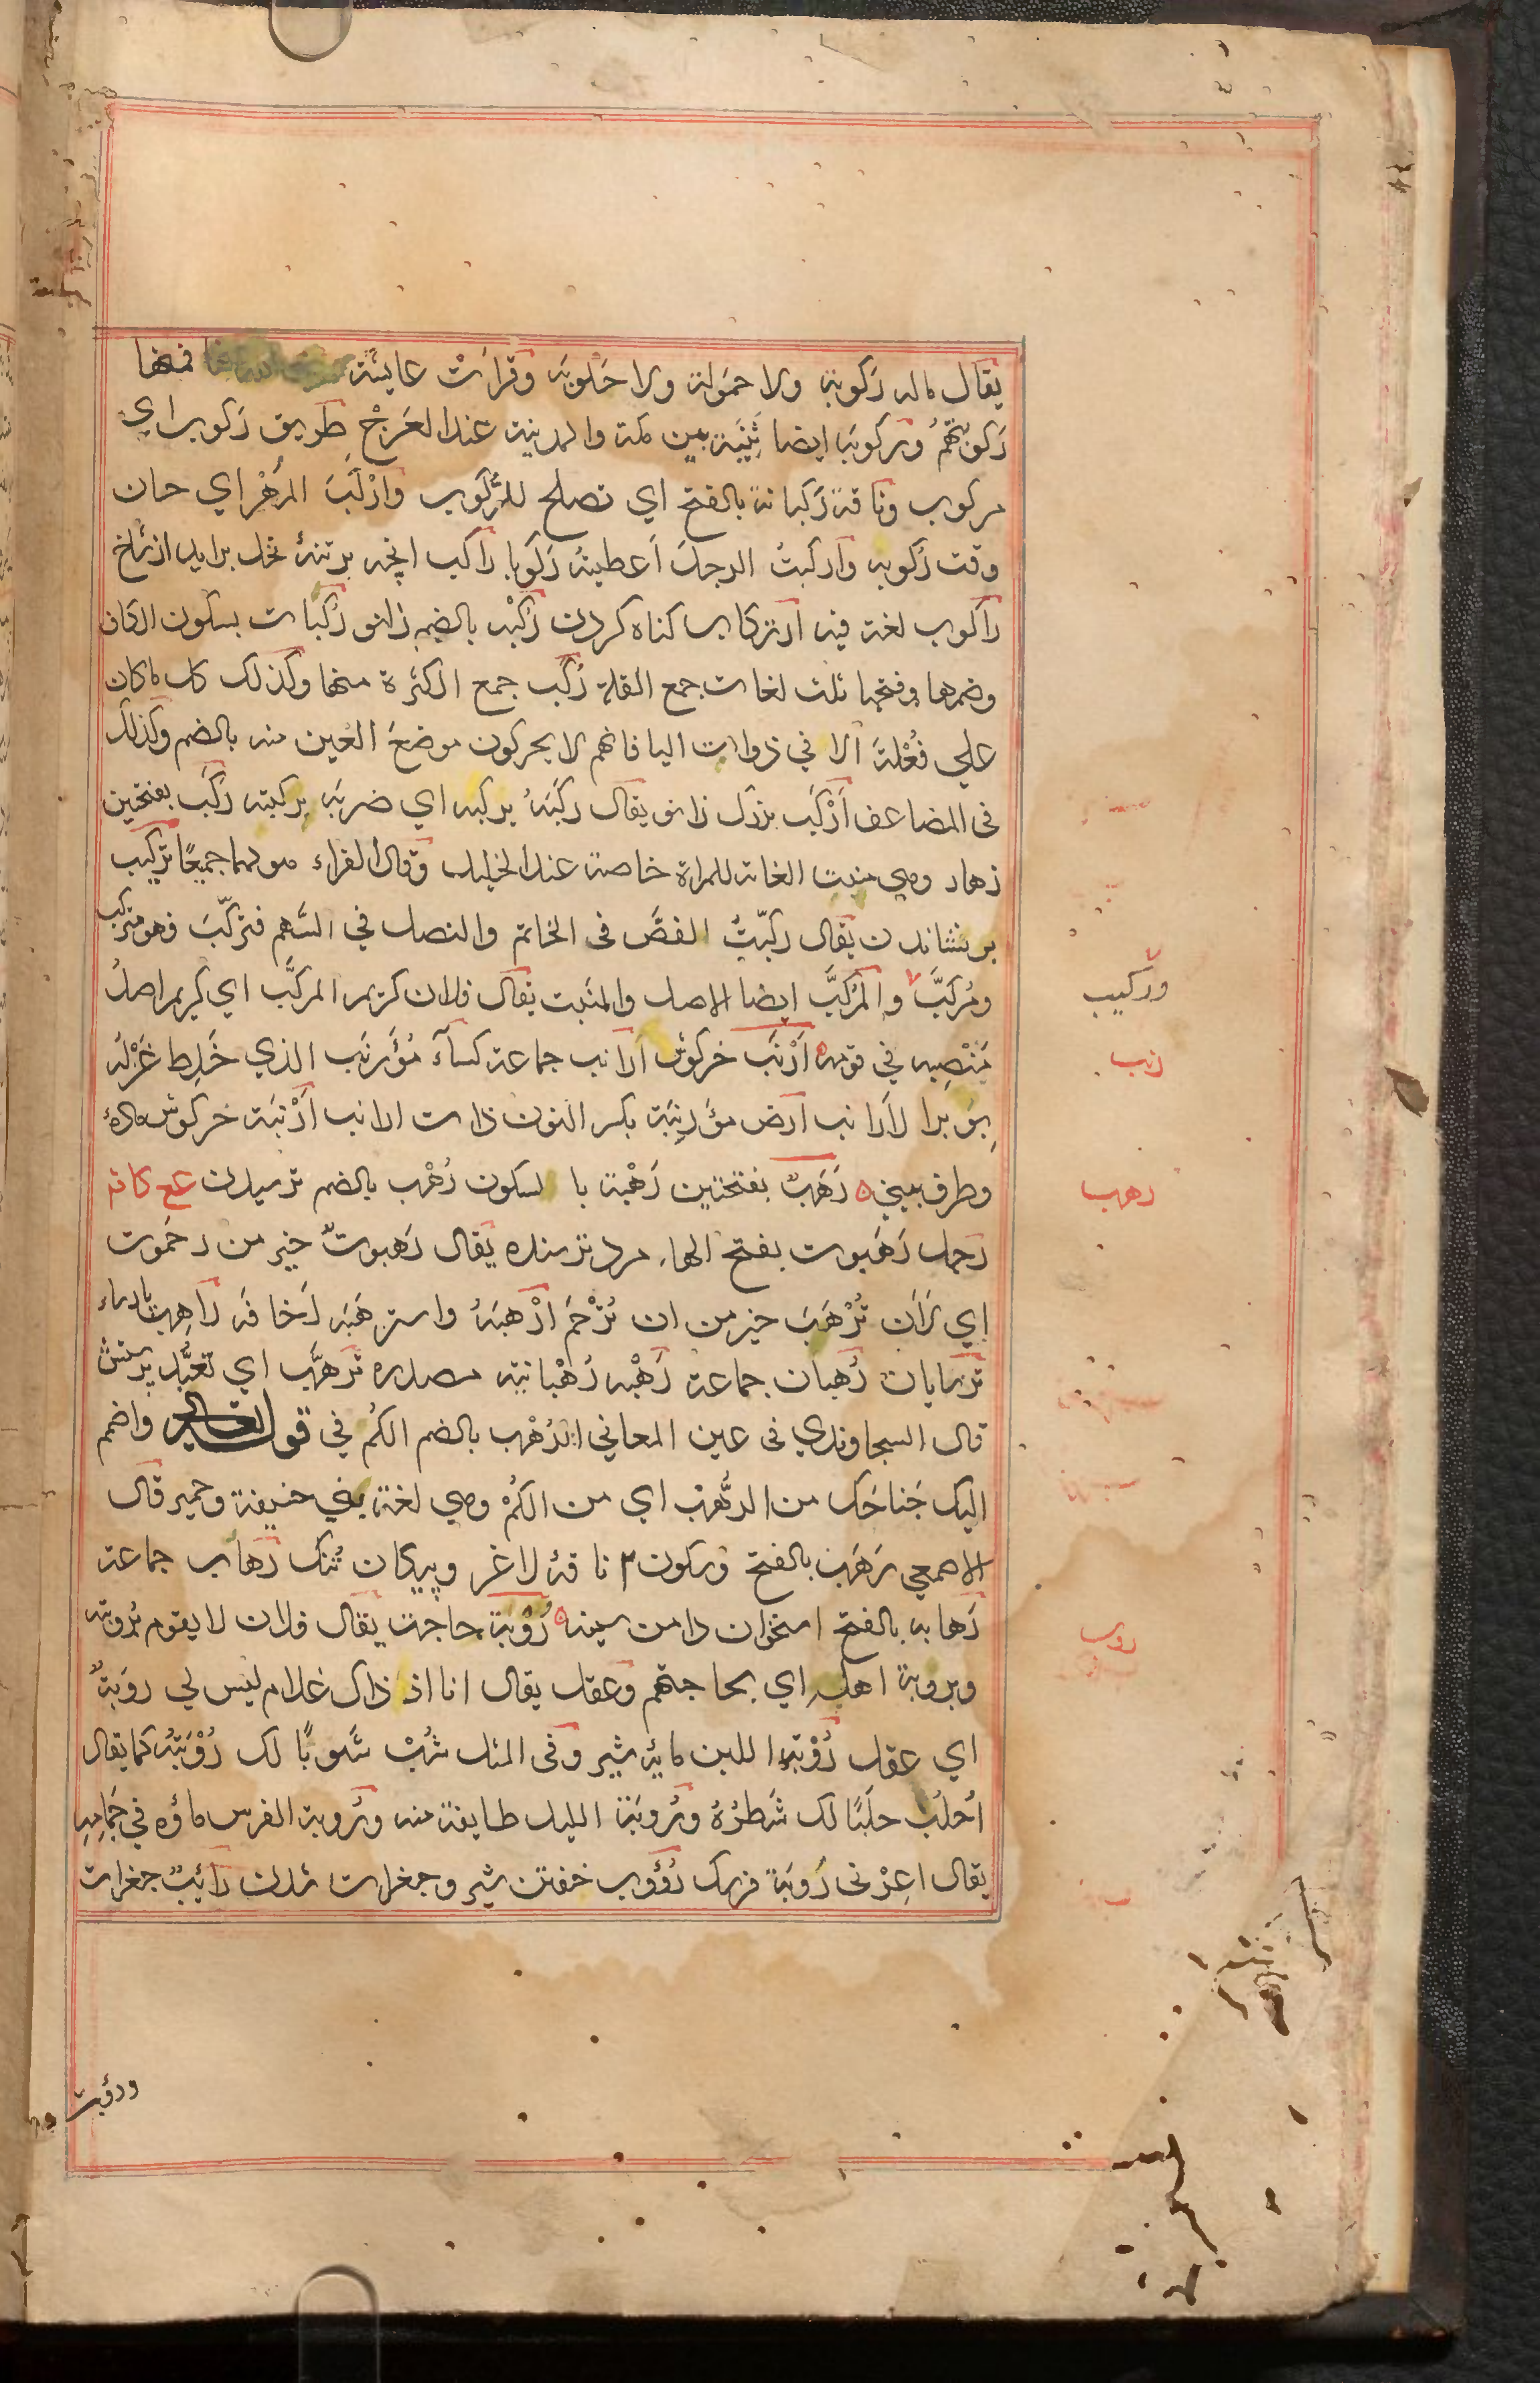 يقال ماله ركوبة ولا حمولة ولا حلوبة وقرأت عايشة فمنها
ركوبتهم وركوبة ايضا ثنية بين مكة والمدينة عند العرج طريق ركوب اي
مركوب وناقة ركبانة بالفتح اي تصلح للركوب واركب المهر اي حان
وقت ركوبه واركبت الرجل اعطيته ركوبا راكب انچه بر تنهٔ نخل برايد از شاخ
راكوب لغة فيه ارتكاب كناه كردن ركبه بالضم زانو ركبات بسكون الكاف
وضمها وفتحها ثلث لغات جمع القلة ركب جمع الكثرة منها وكذلك كل ماكان
علي فعلة الا في ذوات اليا فانهم لا يحركون موضع العين منه بالضم وكذلك
فى المضاعف اركب بزرك زانو يقال ركبه يركبه اي ضربه بركبته ركب بفتحتين
زهار وهي منبت العانة للمراة خاصة عند الخليل وقال الفراء هو لهما جميعا تركيب
بر نشاندن يقال ركبت الفص فى الخاتم والنصل في السهم فتركب فهو متركب
ومركب والمركب ايضا الاصل والمنبت يقال فلان كريم المركب اي كريم اصل
منصبه في قومه ارنب خركوش ارانب جماعة كساء مؤرنب الذي خلط غزله
بوبر الارانب ارض مؤرنبة بكسر النون ذات ارانب ارنبة خركوش ماده
وطرف بيني رهب بفتحتين رهبة بالسكون رهب بالضم ترسيدن
رجل رهبوت بفتح الهاء مرد ترسنده يقال رهبوت خير من رحموت
اي لان ترهب خير من ان ترحم ارهبه واسترهبه اخافه راهب پارساء
ترسايان رهبان جماعة رهبه رهبانية مصدره ترهب اي تعبد پرستش
قال السجاوندي فى عين المعاني الرهب بالضم الكم في قوله واضمم
اليك جناحك من الرهب اي من الكم وهي لغة بني حنيفة وحمير قال
الاصمعي رهب بالفتح وسكون ناقهٔ لاغر وپيكان تنك رهاب جماعة
رهابه بالفتح استخوان دامن سينه روبة حاجت يقال فلان لا يقوم بروبته
وبروبة اهله اي بحاجتهم وعقل يقال انا اذ ذاك غلام ليس لي روبة
اي عقل روبة اللبن مايهٔ شير وفى المثل شب شوبا لك روبته كما يقال
احلب حلبا لك شطره وروبة الليل طايفة منه وروبة الفرس ماؤه في جمامه
يقال اعرني روبة فرسك رؤوب خفتن شير وجغرات شدن رائب جغرات
وركيب
رنب
رهب
روب